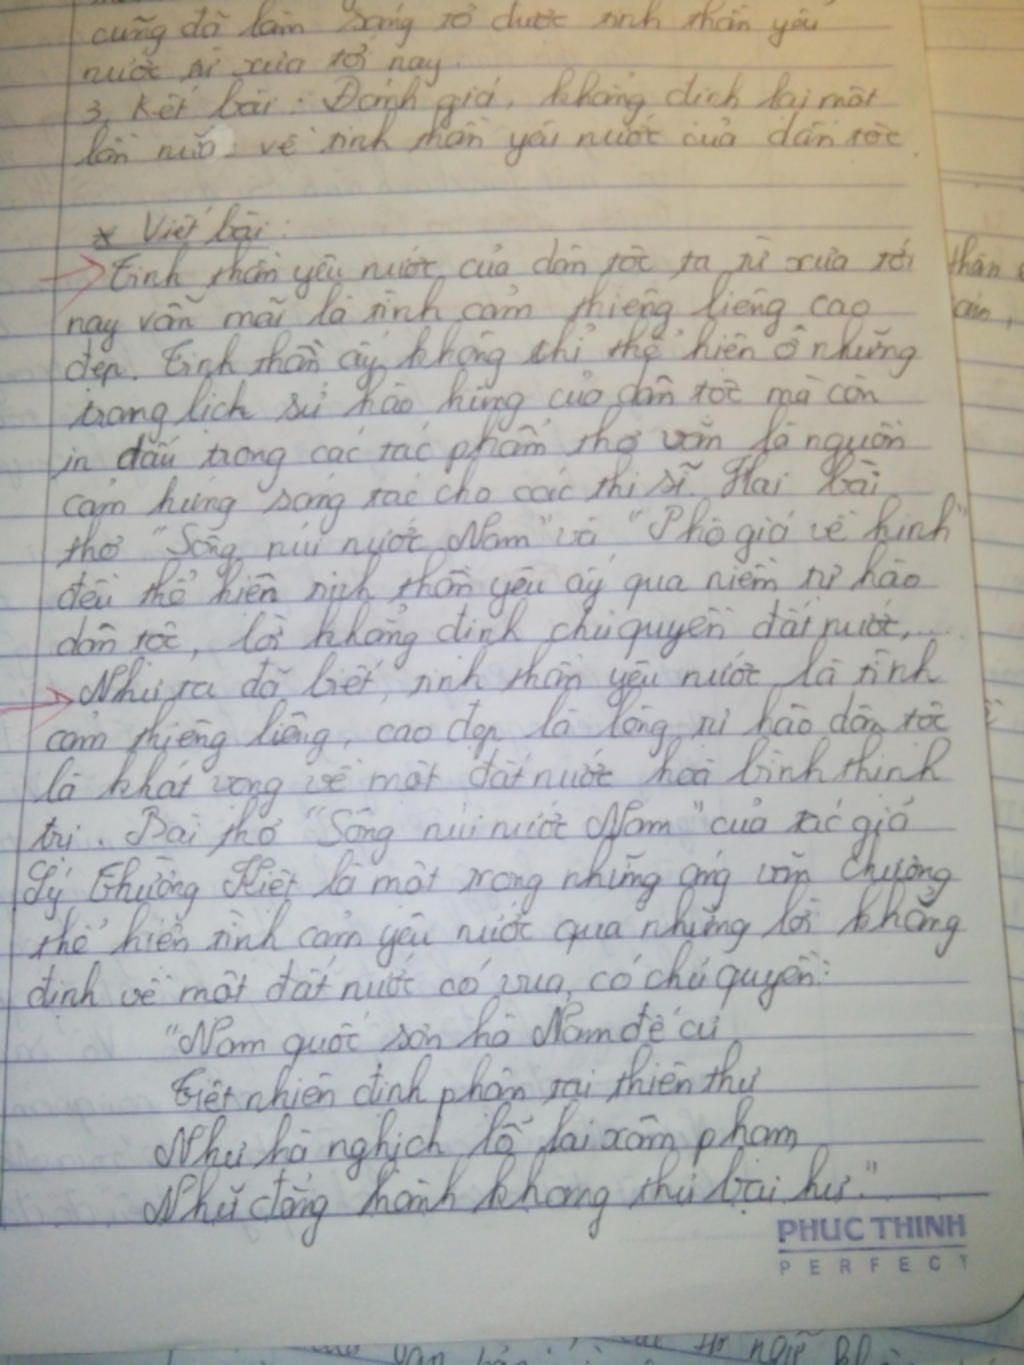 cũng đã làm sáng tỏ được tinh thần yêu
nước từ xưa tới nay.
3, Kết bài: Đánh giá, khẳng định lại một
lần nữa về tinh thần yêu nước của dân tộc.
* Viết bài:
→ Tinh thần yêu nước của dân tộc ta từ xưa tới
nay vẫn mãi là tình cảm thiêng liêng cao
đẹp. Tinh thần ấy không chỉ thể hiện ở những
trang lịch sử hào hùng của dân tộc mà còn
in dấu trong các tác phẩm thơ văn là nguồn
cảm hứng sáng tác cho các thi sĩ. Hai bài
thơ "Sông núi nước Nam" và "Phò giá về kinh"
đều thể hiện tinh thần yêu ấy qua niềm tự hào
dân tộc, lời khẳng định chủ quyền đất nước,...
→ Như ta đã biết, tinh thần yêu nước là tình
cảm thiêng liêng, cao đẹp là lòng tự hào dân tộc
là khát vọng về một đất nước hoà bình thịnh
trị. Bài thơ "Sông núi nước Nam" của tác giả
Lý Thường Kiệt là một trong những áng văn chương
thể hiện tình cảm yêu nước qua những lời khẳng
định về một đất nước có vua, có chủ quyền:
"Nam quốc sơn hà Nam đế cư
Tiệt nhiên định phận tại thiên thư
Như hà nghịch lỗ lai xâm phạm
Nhữ đẳng hành khang thủ bại hư."
PHUC THINH
PERFECT
thần